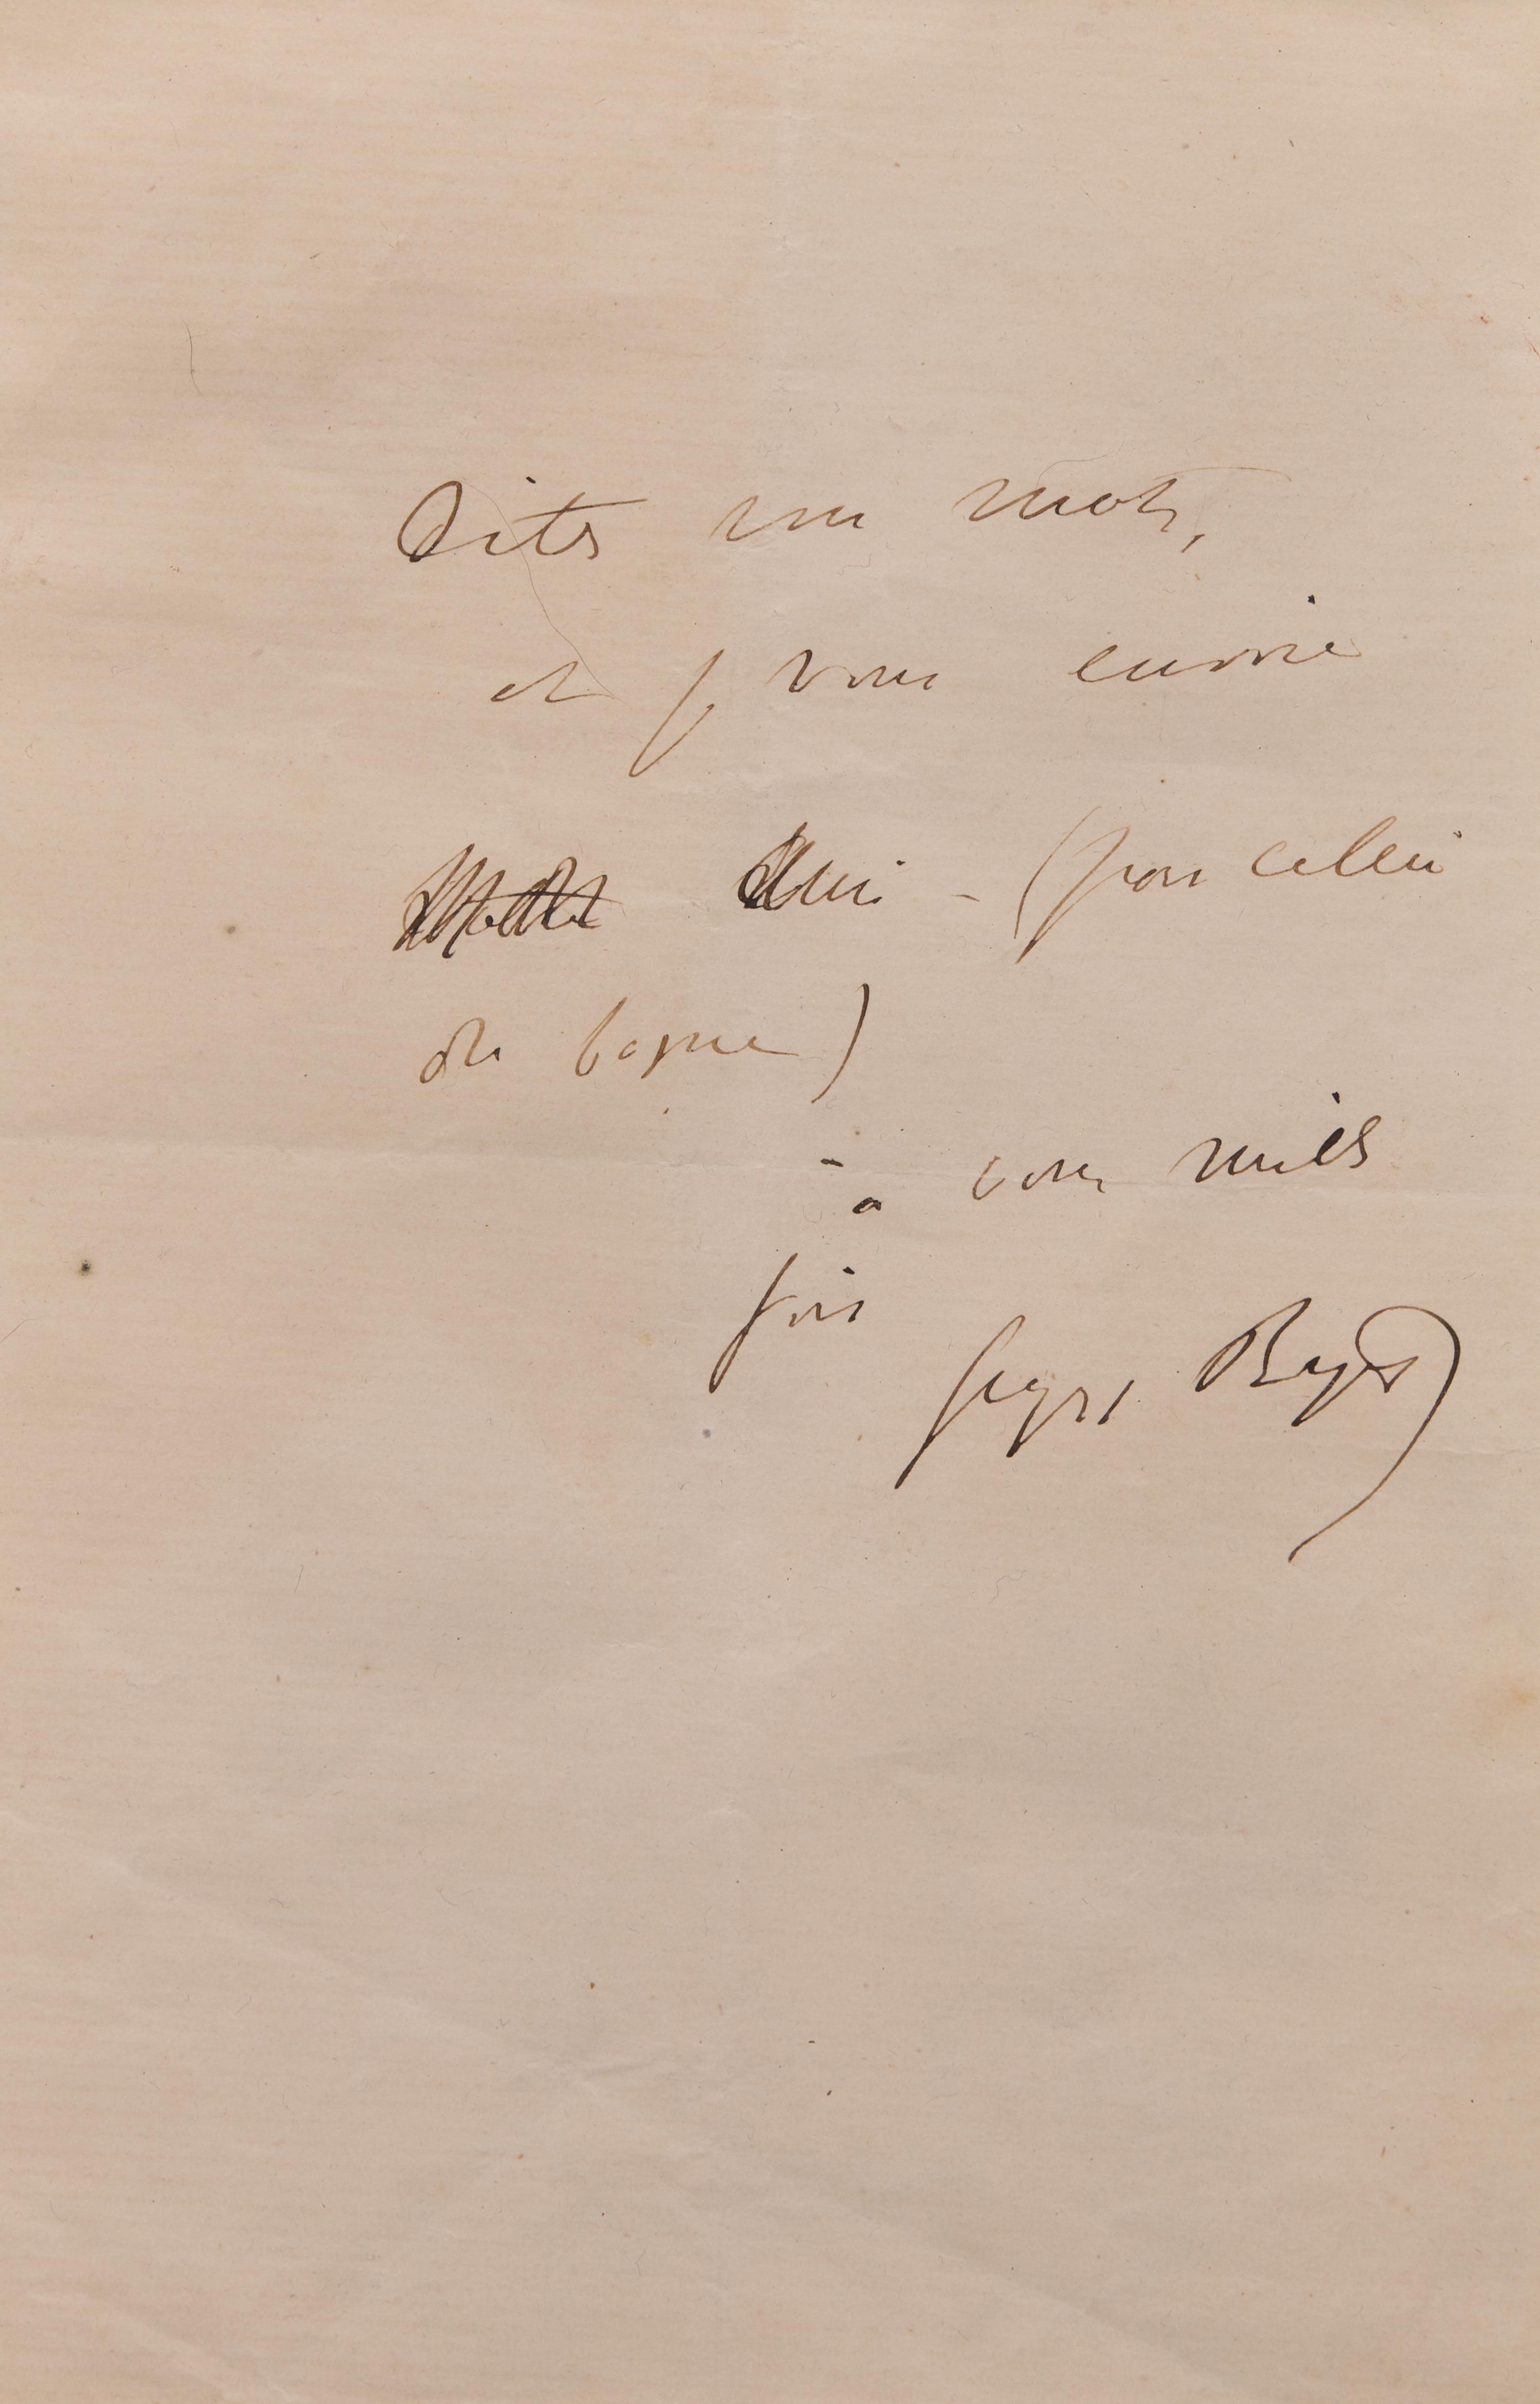 Dites un mot,
et je vous envoie
– (pas celui
du bagne)
– à vous mille
fois
Georges Bizet